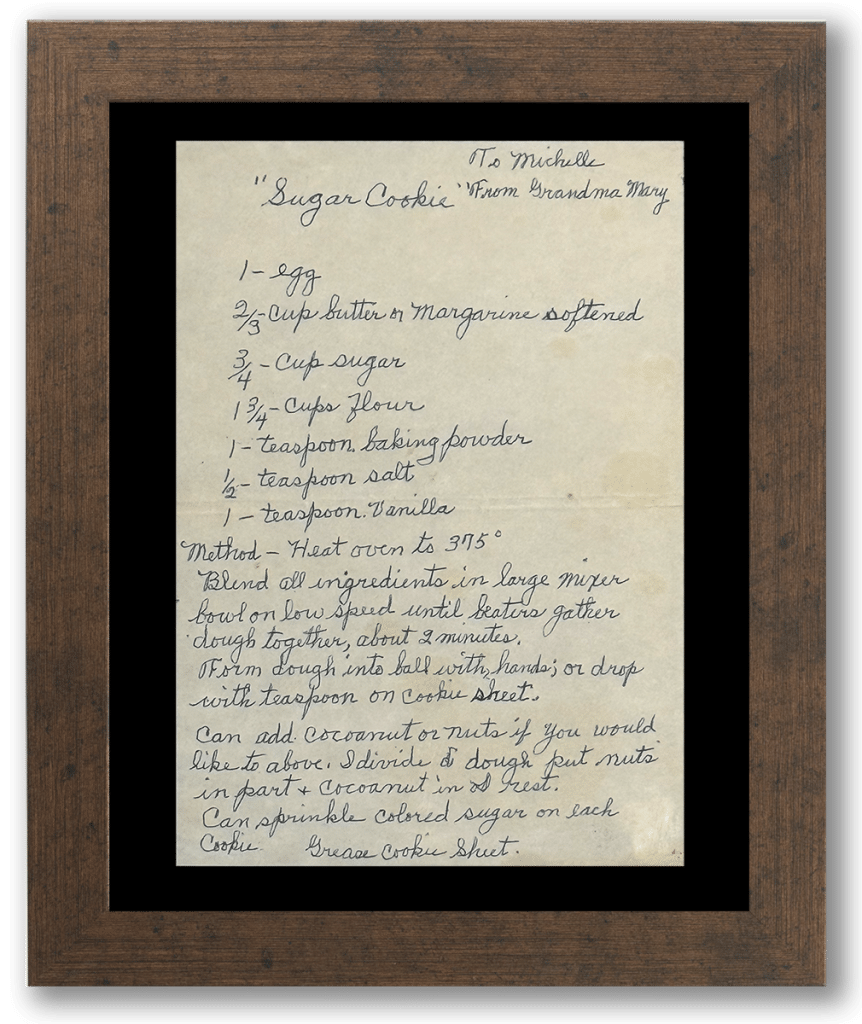 To Michelle
"Sugar Cookie" From Grandma Mary
1 - egg
2/3 - Cup butter or Margarine softened
3/4 - Cup sugar
1 3/4 - Cups flour
1 - teaspoon baking powder
1/2 - teaspoon salt
1 - teaspoon Vanilla
Method - Heat oven to 375°
Blend all ingredients in large mixer
bowl on low speed until beaters gather
dough together, about 2 minutes.
Form dough into ball with hands; or drop
with teaspoon on cookie sheet.
Can add cocoanut or nuts if you would
like to above. I divide dough put nuts
in part + cocoanut in rest.
Can sprinkle colored sugar on each
Cookie. Grease Cookie Sheet.